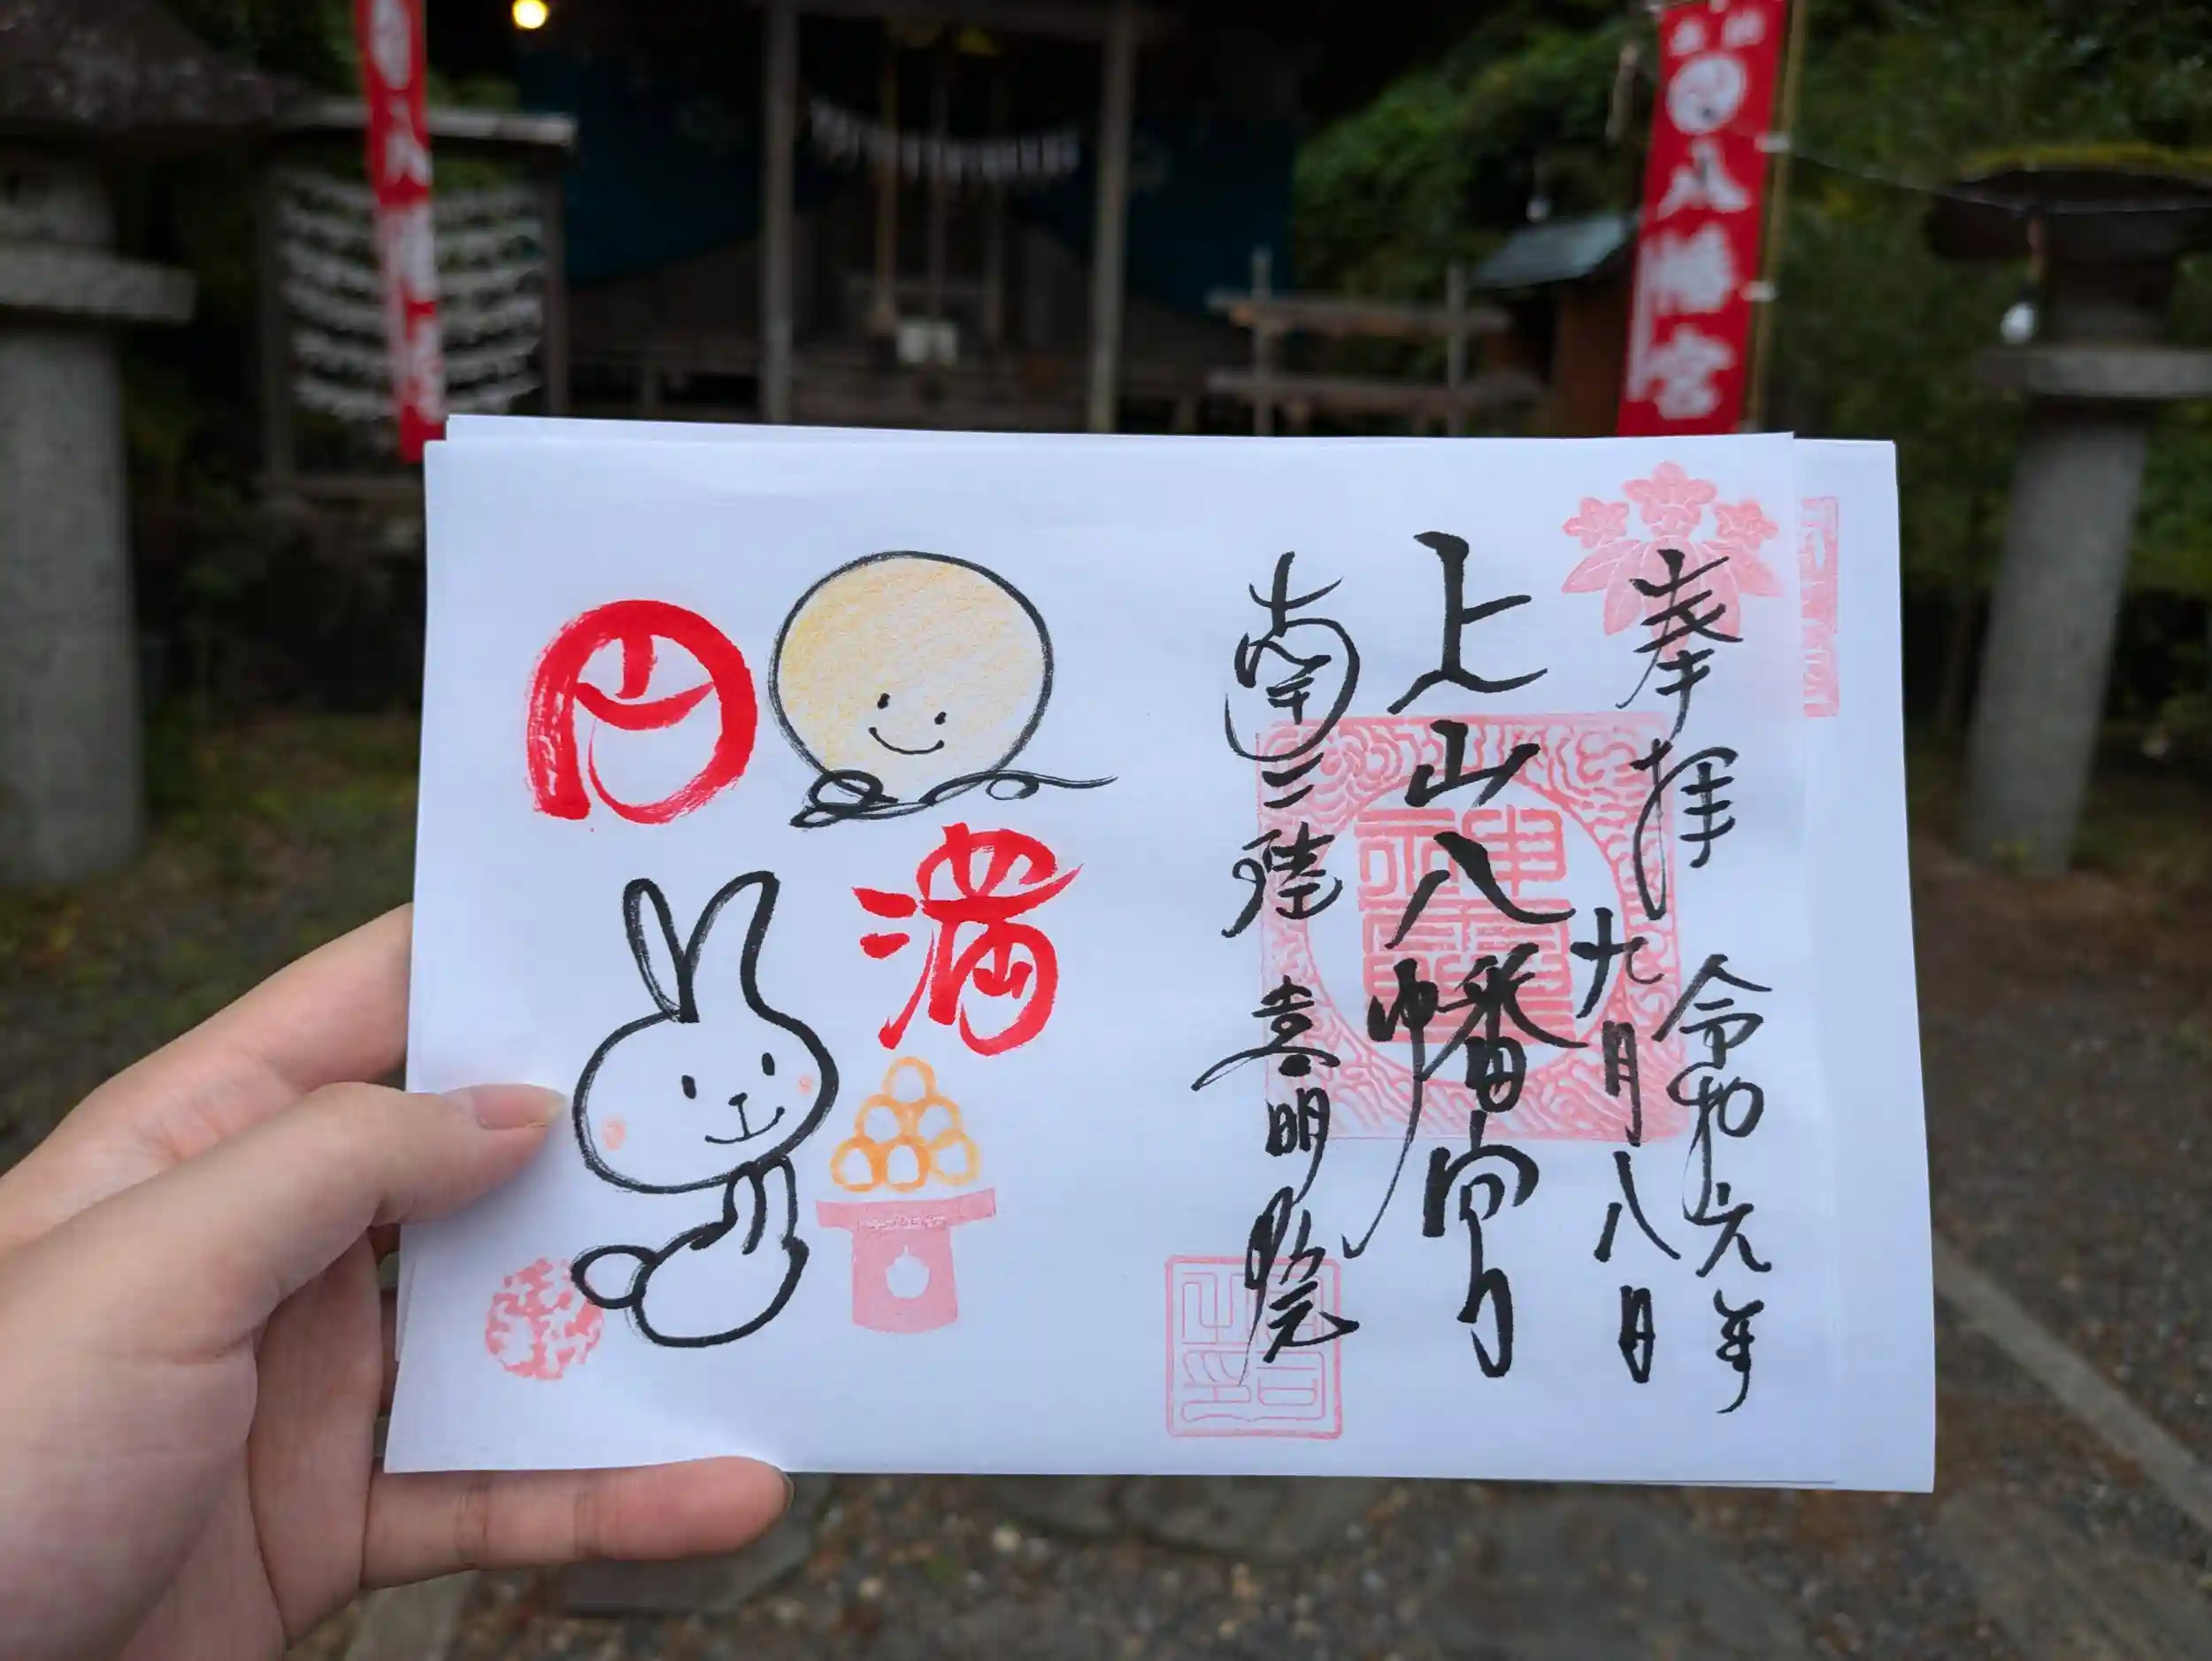 奉拝
令和元年
九月八日
上山八幡宮
南三陸
喜明院
円
満
八幡宮